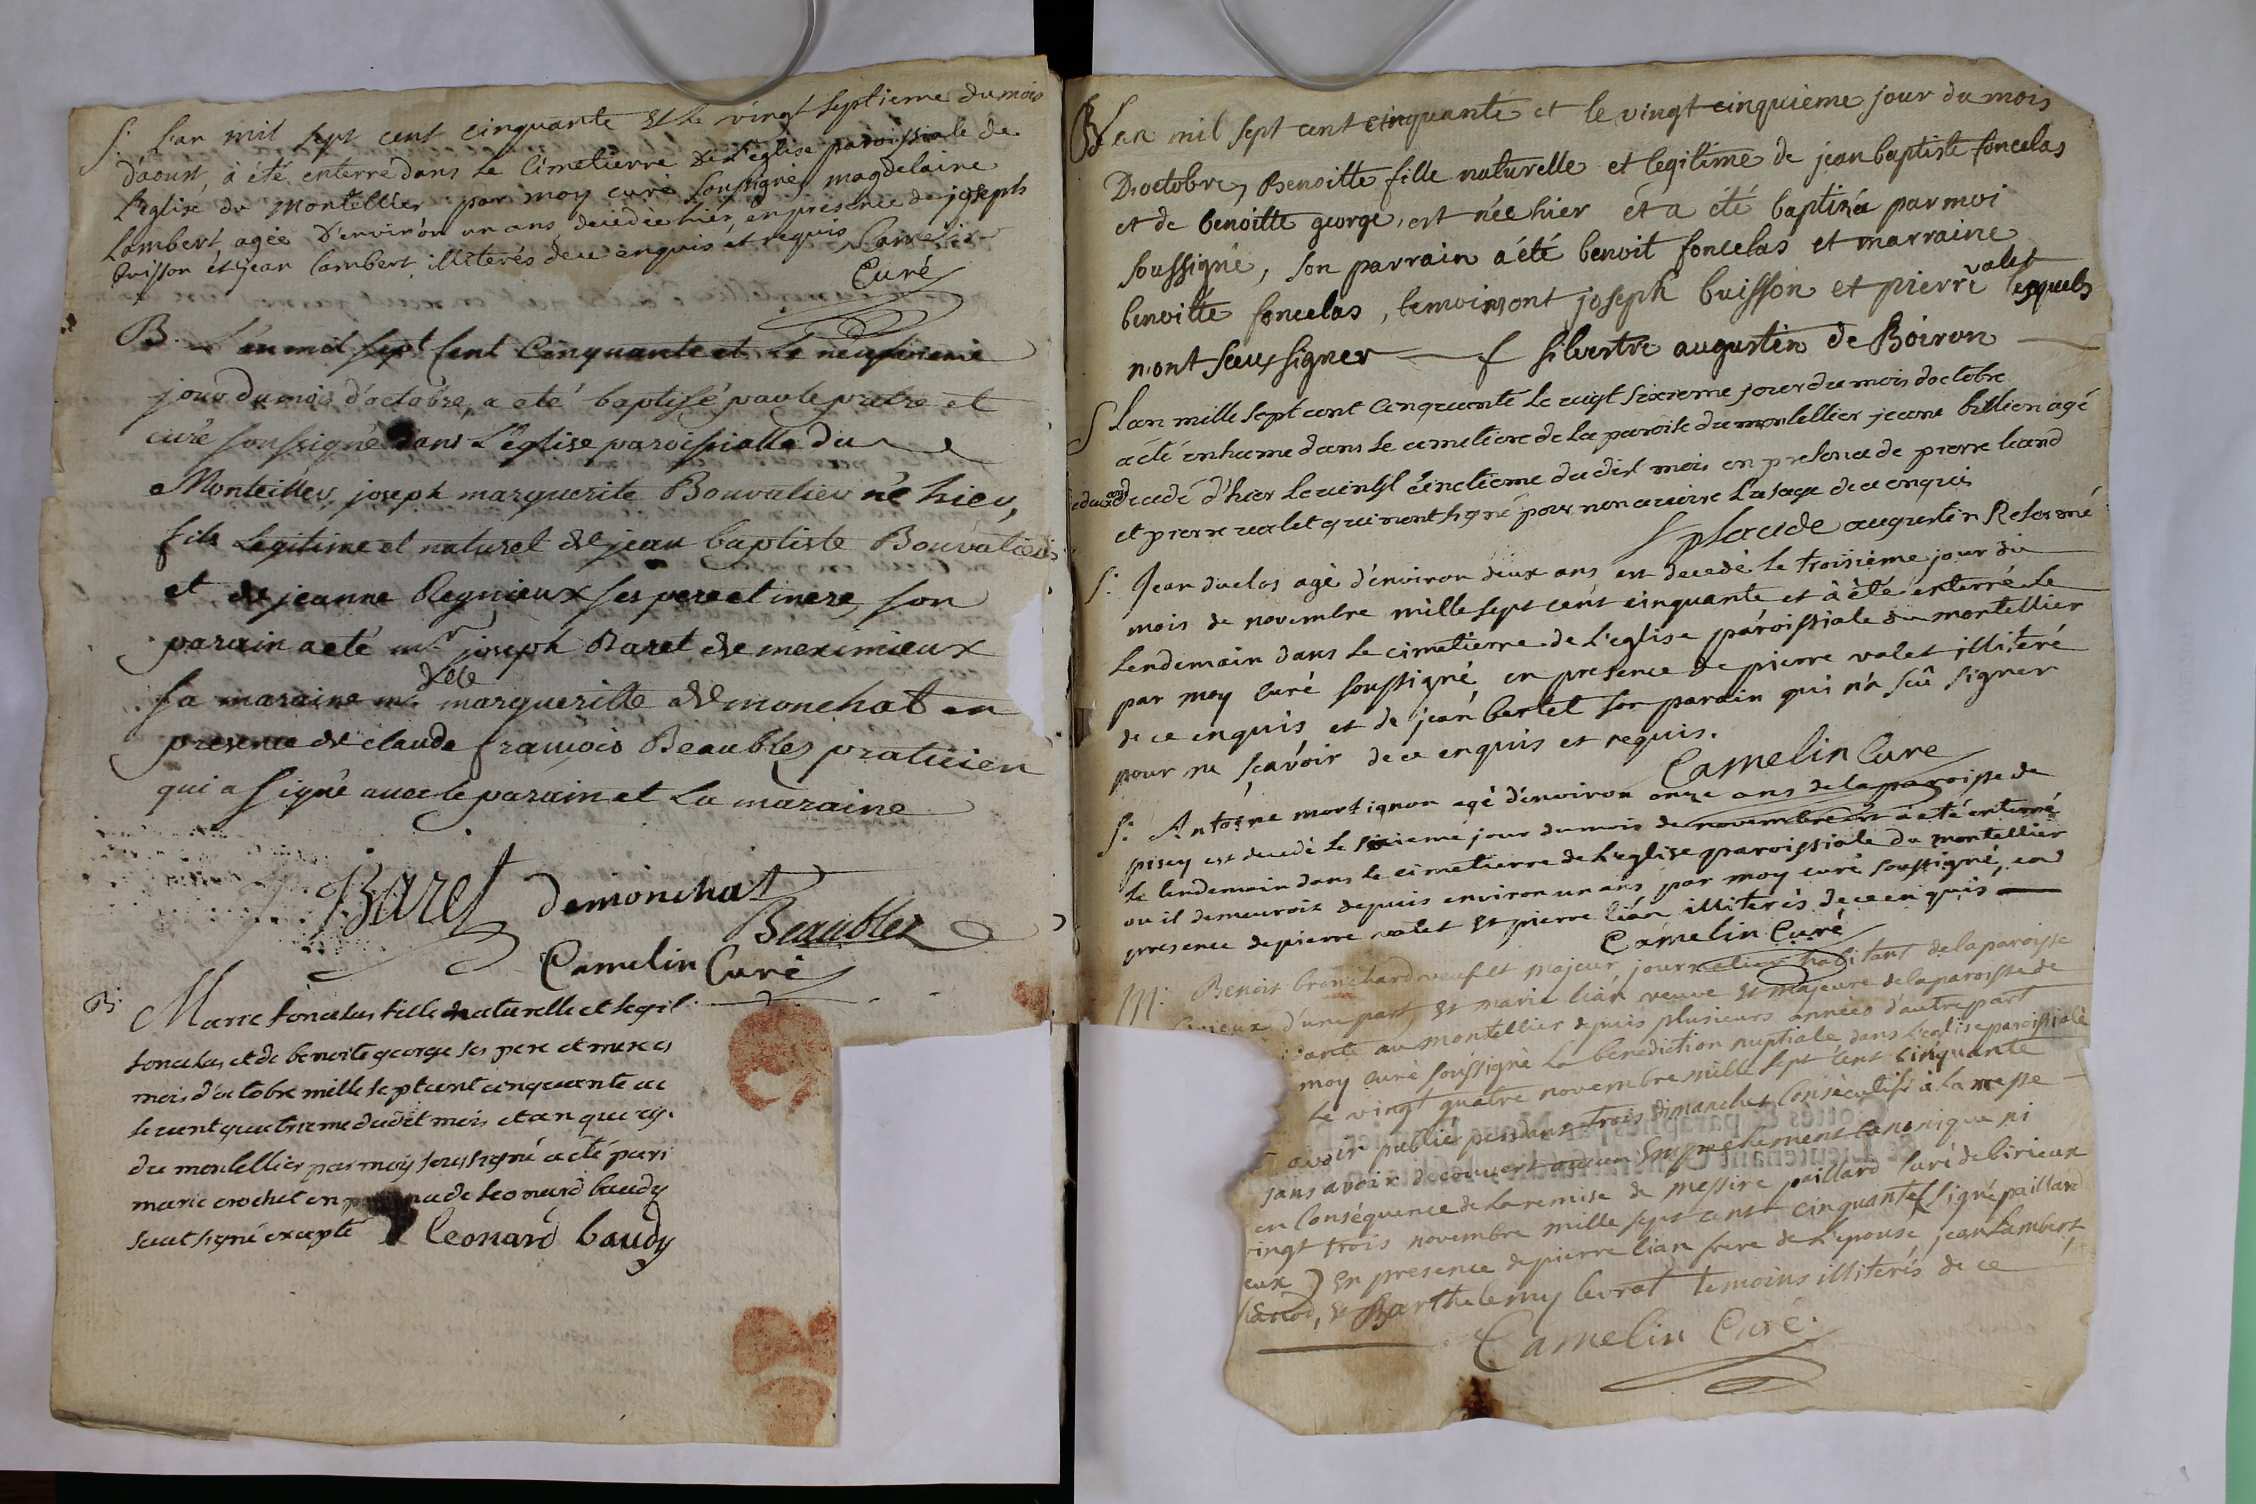 S. L'an mil sept cent cinquante et le vingt septieme du mois
d'aoust, à été enterré dans le cimetierre de l'eglise paroissiale de
l'eglise du montellier par moy curé soussigné, magdelaine
Lambert, agée d'environ un ans, decedée hier, en présence de joseph
buisson et jean lambert illiterés de ce enquis et requis, Camelin
Curé
B. L'an mil sept cent cinquante et le neufvieme
jour du mois d'octobre, a eté baptisé par le pretre et
curé soussigné dans l'eglise paroissialle du
Monteiller, joseph marguerite Bouvatier né hier,
fils legitime et naturel de jean baptiste Bouvatier
et de jeanne Regnieux ses pere et mere, son
parain a eté mr joseph Baret de meximieux
sa maraine md.elle marguerille de monchat en
presence de claude françois Beaublez praticien
qui a signé avec le parain et la maraine
Baret demonchat
Beaublez
Camelin Curé
B. Marie foncelas fille naturelle et legit
foncelas, et de benoite george ses pere et mere
mois d'octobre mille sept cent cinquante
le vent quatrieme dudit mois et an que
du montellier par moy soussigné a eté
marie crochet en de leonard baudy
signé excepté Leonard baudy
B L'an mil sept cent cinquante et le vingt cinquieme jour du mois
D'octobre, Benoitte fille naturelle et legitime de jean baptiste foncelas
et de benoitte george, est née hier et a été baptizée par moi
soussigné, son parrain a été benoit foncelas et marraine
benoitte foncelas, temoins sont joseph buisson et pierre valet lesquels
n'ont sceu signer f silvestre augustin de Boiron
S L'an mille sept cent cinquante le vigt sixieme jour du mois doctobre
a été enhumé dans le cimetiere de la paroise du montellier jeane billion agé
decedé d'hier le vingt cinctieme dudit mois en presence de pierre liand
et pierre valet qui n'ont signé pour n'en avoire l'usage de ce enquis
f placide augustin Reformé
S. Jean duclos agé d'environ deux ans, est decedé le troisiéme jour du
mois de novembre mille sept cent cinquante et à été enterré le
lendemain dans le cimetierre de l'eglise paroissiale du montellier
par moy curé soussigné en presence de pierre valet illiteré
de ce enquis et de jean bertet son parain qui n'a scû signer
pour ne sçavoir de ce enquis et requis.
Camelin Curé
S. Antoine mortignon agé d'environ onze ans de la paroisse de
pisey est decedé le sixieme jour du mois de novembre et à été enterré
le lendemain dans le cimetierre de l'eglise paroissiale du montellier
ou il demeuroit depuis environ un ans, par moy curé soussigné, en
presence de pierre valet et pierre lian illiterés de ce enquis
Camelin Curé
M. Benoit bronchard veuf et majeur, journalier habitant de la paroisse
d'une part, et marie lian veuve et majeure de la paroisse de
au montellier depuis plusieurs années d'autre part
moy curé soussigné la benediction nuptiale dans l'eglise paroissiale
le vingt quatre novembre mille sept cent cinquante
avoir publié pendant trois dimanches consécutifs à la messe
sans avoir decouvert aucun empechement canonique ni
en conséquence de la remise de messire paillard curé de birieux
vingt trois novembre mille sept cent cinquante (signé paillard
eux) en presence de pierre lian frere de l'epouse, jean lambert,
et Barthelemy levrat temoins illiterés de ce
Camelin Curé.